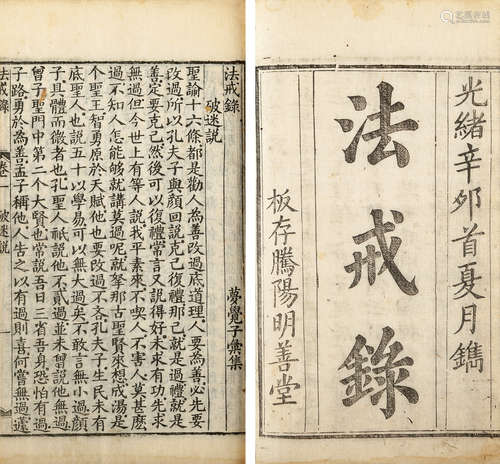 光緒辛卯首夏月鐫
法戒錄
板存騰陽明善堂
法戒錄
破迷説
夢覺子彙集
聖諭十六條都是勸人為善改過底道理人要為善必先要
改過所以孔夫子與顏回説克己復禮那己就是過禮就是
善定要克己然後可以復禮常言又説得好未求有功先求
無過但今世上有等人説我平素來不哄人不害人莫甚麽
過不知人怎能够就講莫過呢就拏那古聖賢來想成湯是
个聖王智勇原於天賦他也要改過不吝孔夫子生民未有
子他尚説五十以學易可以無大過矣不敢言無小過顏
子具體而微者也孔聖人祇説他不貳過並未曾説他無過
曾子聖門中第二个大賢也常説吾日三省吾身恐怕有過
子路勇於為善孟子稱他人告之以有過則喜何嘗無過
法戒錄
卷一
破迷説